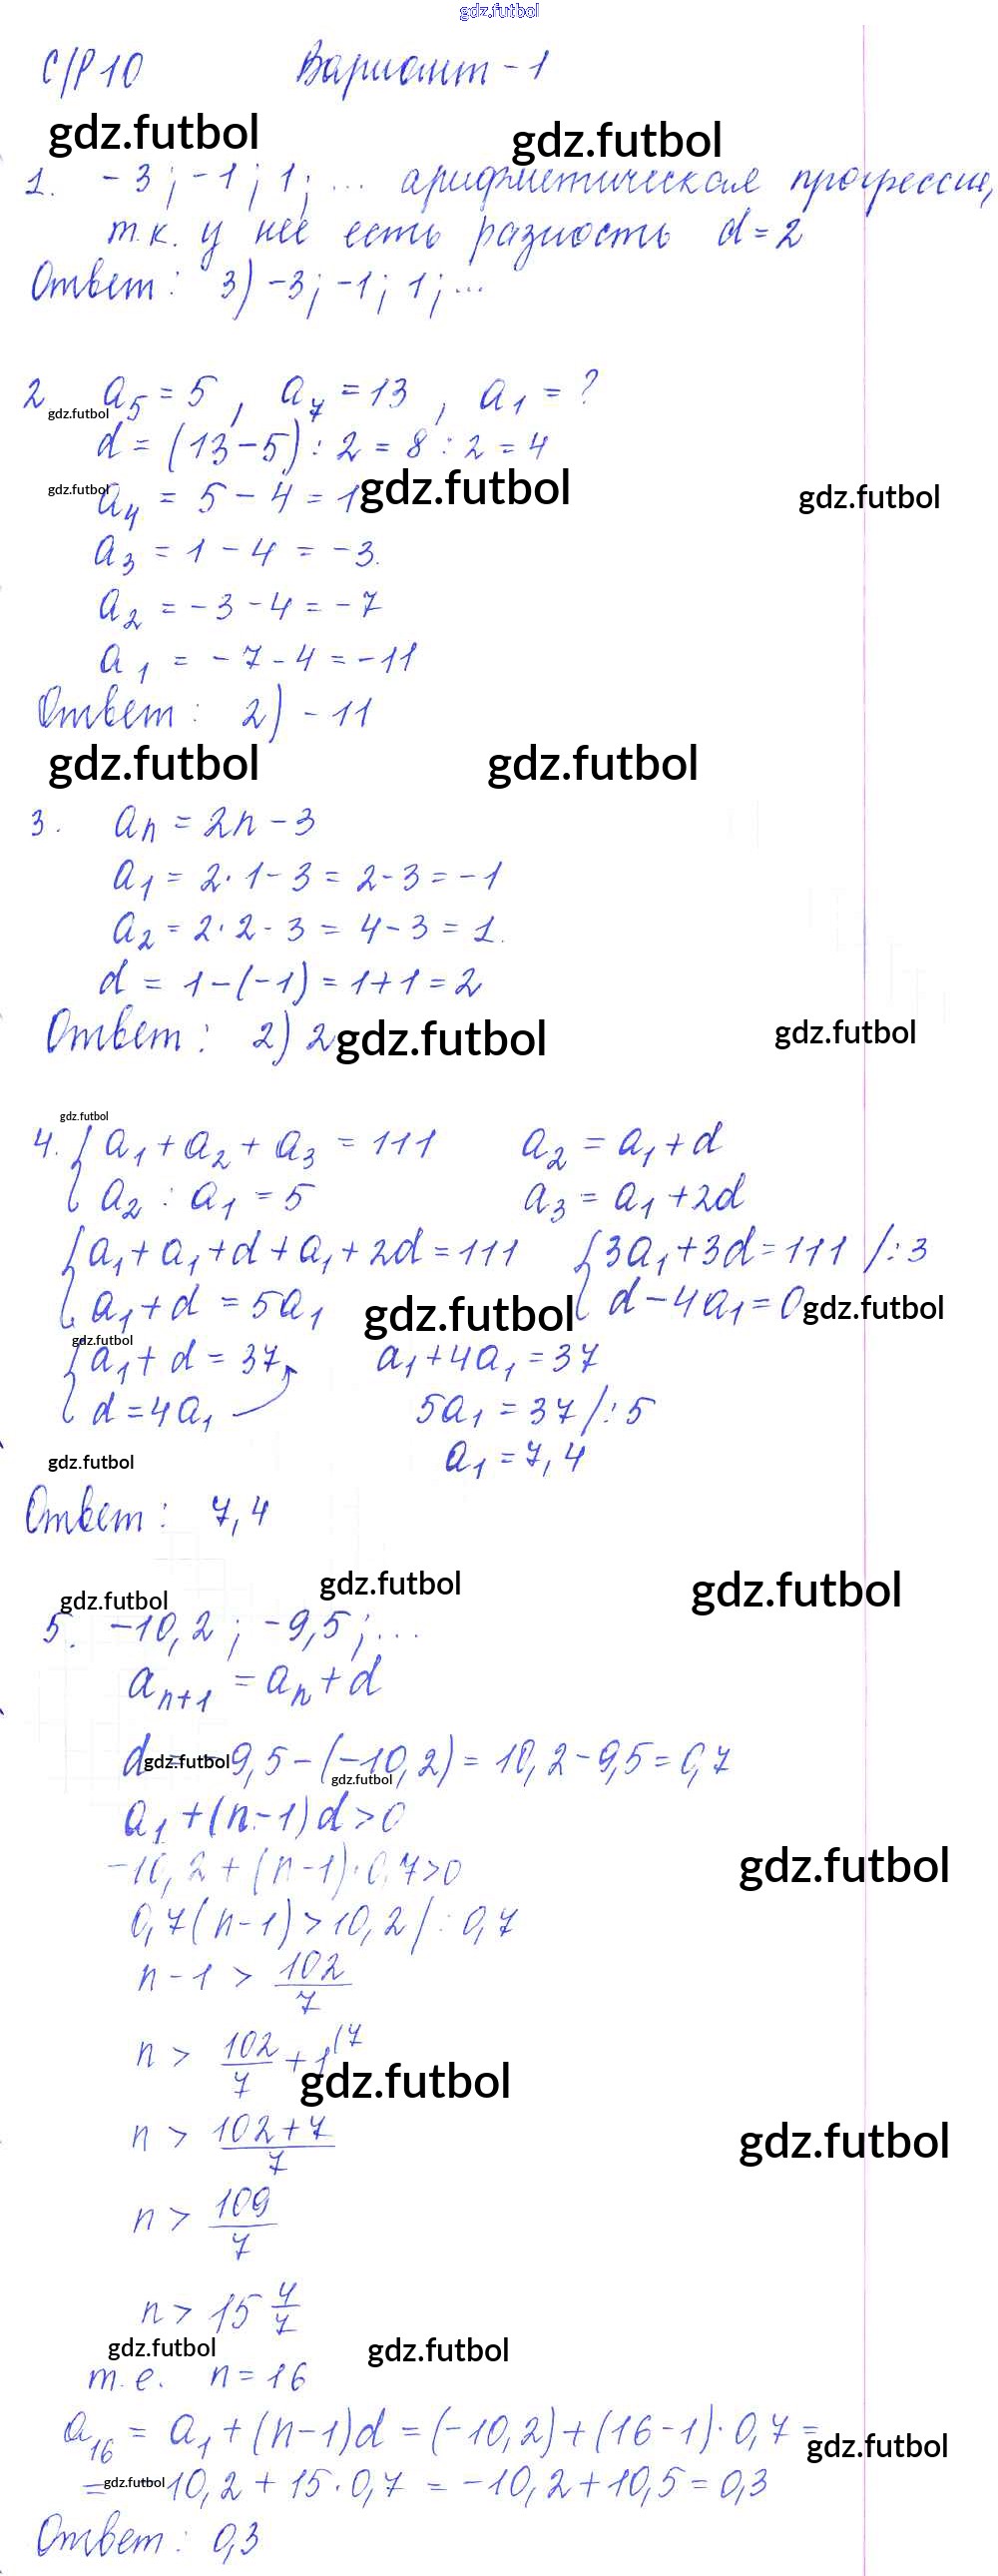 gdz.futbol
С/Р 10 Вариант - 1
gdz.futbol gdz.futbol
1. -3; -1; 1; ... арифметическая прогрессия,
т.к. у неё есть разность d = 2
Ответ: 3) -3; -1; 1; ...
2 a₅ = 5, a₇ = 13, a₁ = ?
gdz.futbol
d = (13 - 5) : 2 = 8 : 2 = 4
gdz.futbol a₄ = 5 - 4 = 1 gdz.futbol gdz.futbol
a₃ = 1 - 4 = -3.
a₂ = -3 - 4 = -7
a₁ = -7 - 4 = -11
Ответ: 2) -11
gdz.futbol gdz.futbol
3. aₙ = 2n - 3
a₁ = 2 · 1 - 3 = 2 - 3 = -1
a₂ = 2 · 2 - 3 = 4 - 3 = 1.
d = 1 - (-1) = 1 + 1 = 2
Ответ: 2) 2 gdz.futbol gdz.futbol
gdz.futbol
4. { a₁ + a₂ + a₃ = 111 a₂ = a₁ + d
a₂ : a₁ = 5 a₃ = a₁ + 2d
{ a₁ + a₁ + d + a₁ + 2d = 111 { 3a₁ + 3d = 111 /: 3
a₁ + d = 5a₁ gdz.futbol d - 4a₁ = 0 gdz.futbol
gdz.futbol
{ a₁ + d = 37 a₁ + 4a₁ = 37
d = 4a₁ 5a₁ = 37 /: 5
gdz.futbol a₁ = 7,4
Ответ: 7,4
gdz.futbol gdz.futbol gdz.futbol
5. -10,2; -9,5; ...
aₙ₊₁ = aₙ + d
d = -9,5 - (-10,2) = 10,2 - 9,5 = 0,7
gdz.futbol gdz.futbol
a₁ + (n - 1)d > 0
-10,2 + (n - 1) · 0,7 > 0 gdz.futbol
0,7(n - 1) > 10,2 /: 0,7
n - 1 > 102/7
n > 102/7 + 1⁽⁷
gdz.futbol
n > (102 + 7)/7 gdz.futbol
n > 109/7
n > 15 4/7
gdz.futbol gdz.futbol
т.е. n = 16
a₁₆ = a₁ + (n - 1)d = (-10,2) + (16 - 1) · 0,7 =
gdz.futbol
= -10,2 + 15 · 0,7 = -10,2 + 10,5 = 0,3
gdz.futbol
Ответ: 0,3